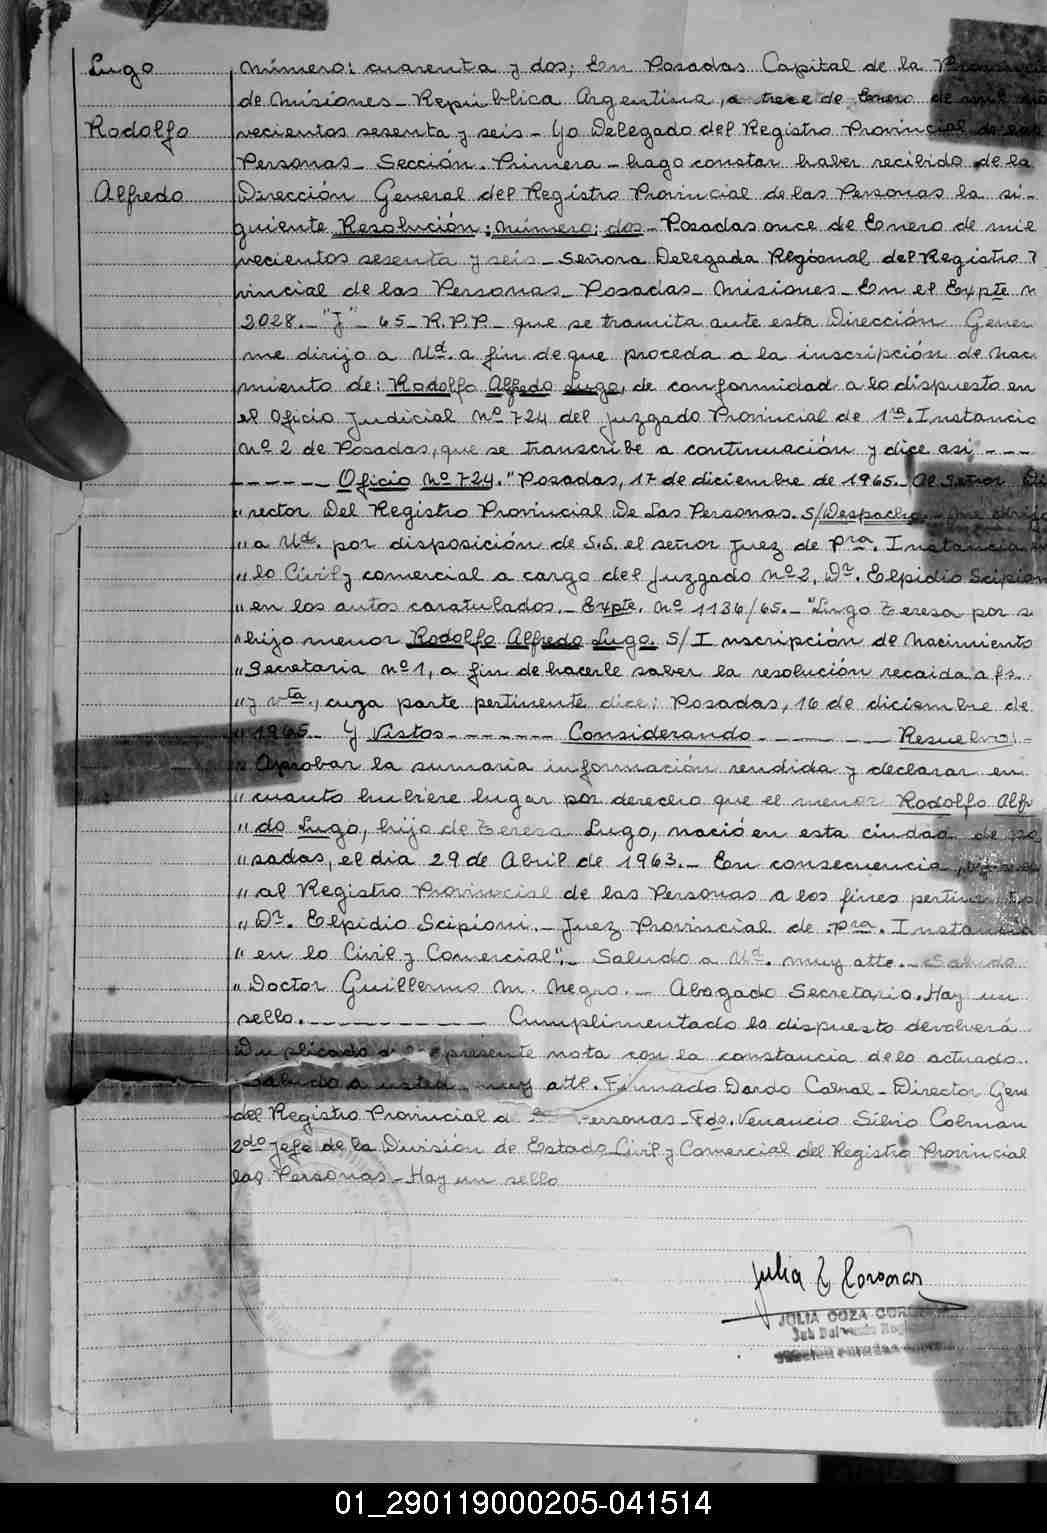 Lugo
Rodolfo
Alfredo
Número: cuarenta y dos; En Posadas Capital de la Provincia
de Misiones - República Argentina, a trece de Enero de mil no
vecientos sesenta y seis - Yo Delegado del Registro Provincial de las
Personas - Sección. Primera - hago constar haber recibido de la
Dirección General del Registro Provincial de las Personas la si-
guiente Resolución; número; dos - Posadas once de Enero de mil
vecientos sesenta y seis - Señora Delegada Regional del Registro
vincial de las Personas - Posadas - Misiones - En el Expte n
2028. - "J" - 65 - R.P.P. - que se tramita ante esta Dirección Gener
me dirijo a Ud. a fin de que proceda a la inscripción de nac
miento de: Rodolfo Alfredo Lugo, de conformidad a lo dispuesto en
el Oficio Judicial Nº 724 del Juzgado Provincial de 1ra. Instancia
Nº 2 de Posadas, que se transcribe a continuación y dice así - - - -
- - - - - - Oficio Nº 724. "Posadas, 17 de diciembre de 1965. - Al Señor Di
" rector Del Registro Provincial De Las Personas. S/Despacho. - Me dirijo
" a Ud. por disposición de S.S. el señor Juez de Pra. Instancia en
" lo Civil y comercial a cargo del Juzgado Nº 2, Dr. Elpidio Scipion
" en los autos caratulados. - Expte. Nº 1136/65. - "Lugo Teresa por s
" hijo menor Rodolfo Alfredo Lugo. S/Inscripción de Nacimiento
" Secretaria Nº 1, a fin de hacerle saber la resolución recaida a fs.
" 7 vta., cuya parte pertinente dice: Posadas, 16 de diciembre de
" 1965. - Y Vistos - - - - - - - Considerando - - - - - - - Resuelvo: -
" Aprobar la sumaria información rendida y declarar en
" cuanto hubiere lugar por derecho que el menor Rodolfo Alfr
" do Lugo, hijo de Teresa Lugo, nació en esta ciudad de Po
" sadas, el dia 29 de Abril de 1963. - En consecuencia,
" al Registro Provincial de las Personas a los fines pertinentes
" Dr. Elpidio Scipioni. - Juez Provincial de Pra. Instancia
" en lo Civil y Comercial". - Saludo a Ud. muy atte. - Saludo
" Doctor Guillermo M. Negro. - Abogado Secretario. Hay un
sello. - - - - - - - - - - Cumplimentado lo dispuesto devolverá
Duplicado de la presente nota con la constancia de lo actuado.
Saludo a usted muy atte. Firmado Dardo Cabral - Director Gen
del Registro Provincial d Personas - Fdo. Venancio Silvio Colman
2do Jefe de la División de Estado Civil y Comercial del Registro Provincial
las Personas - Hay un sello
Julia
JULIA COZA
01_290119000205-041514